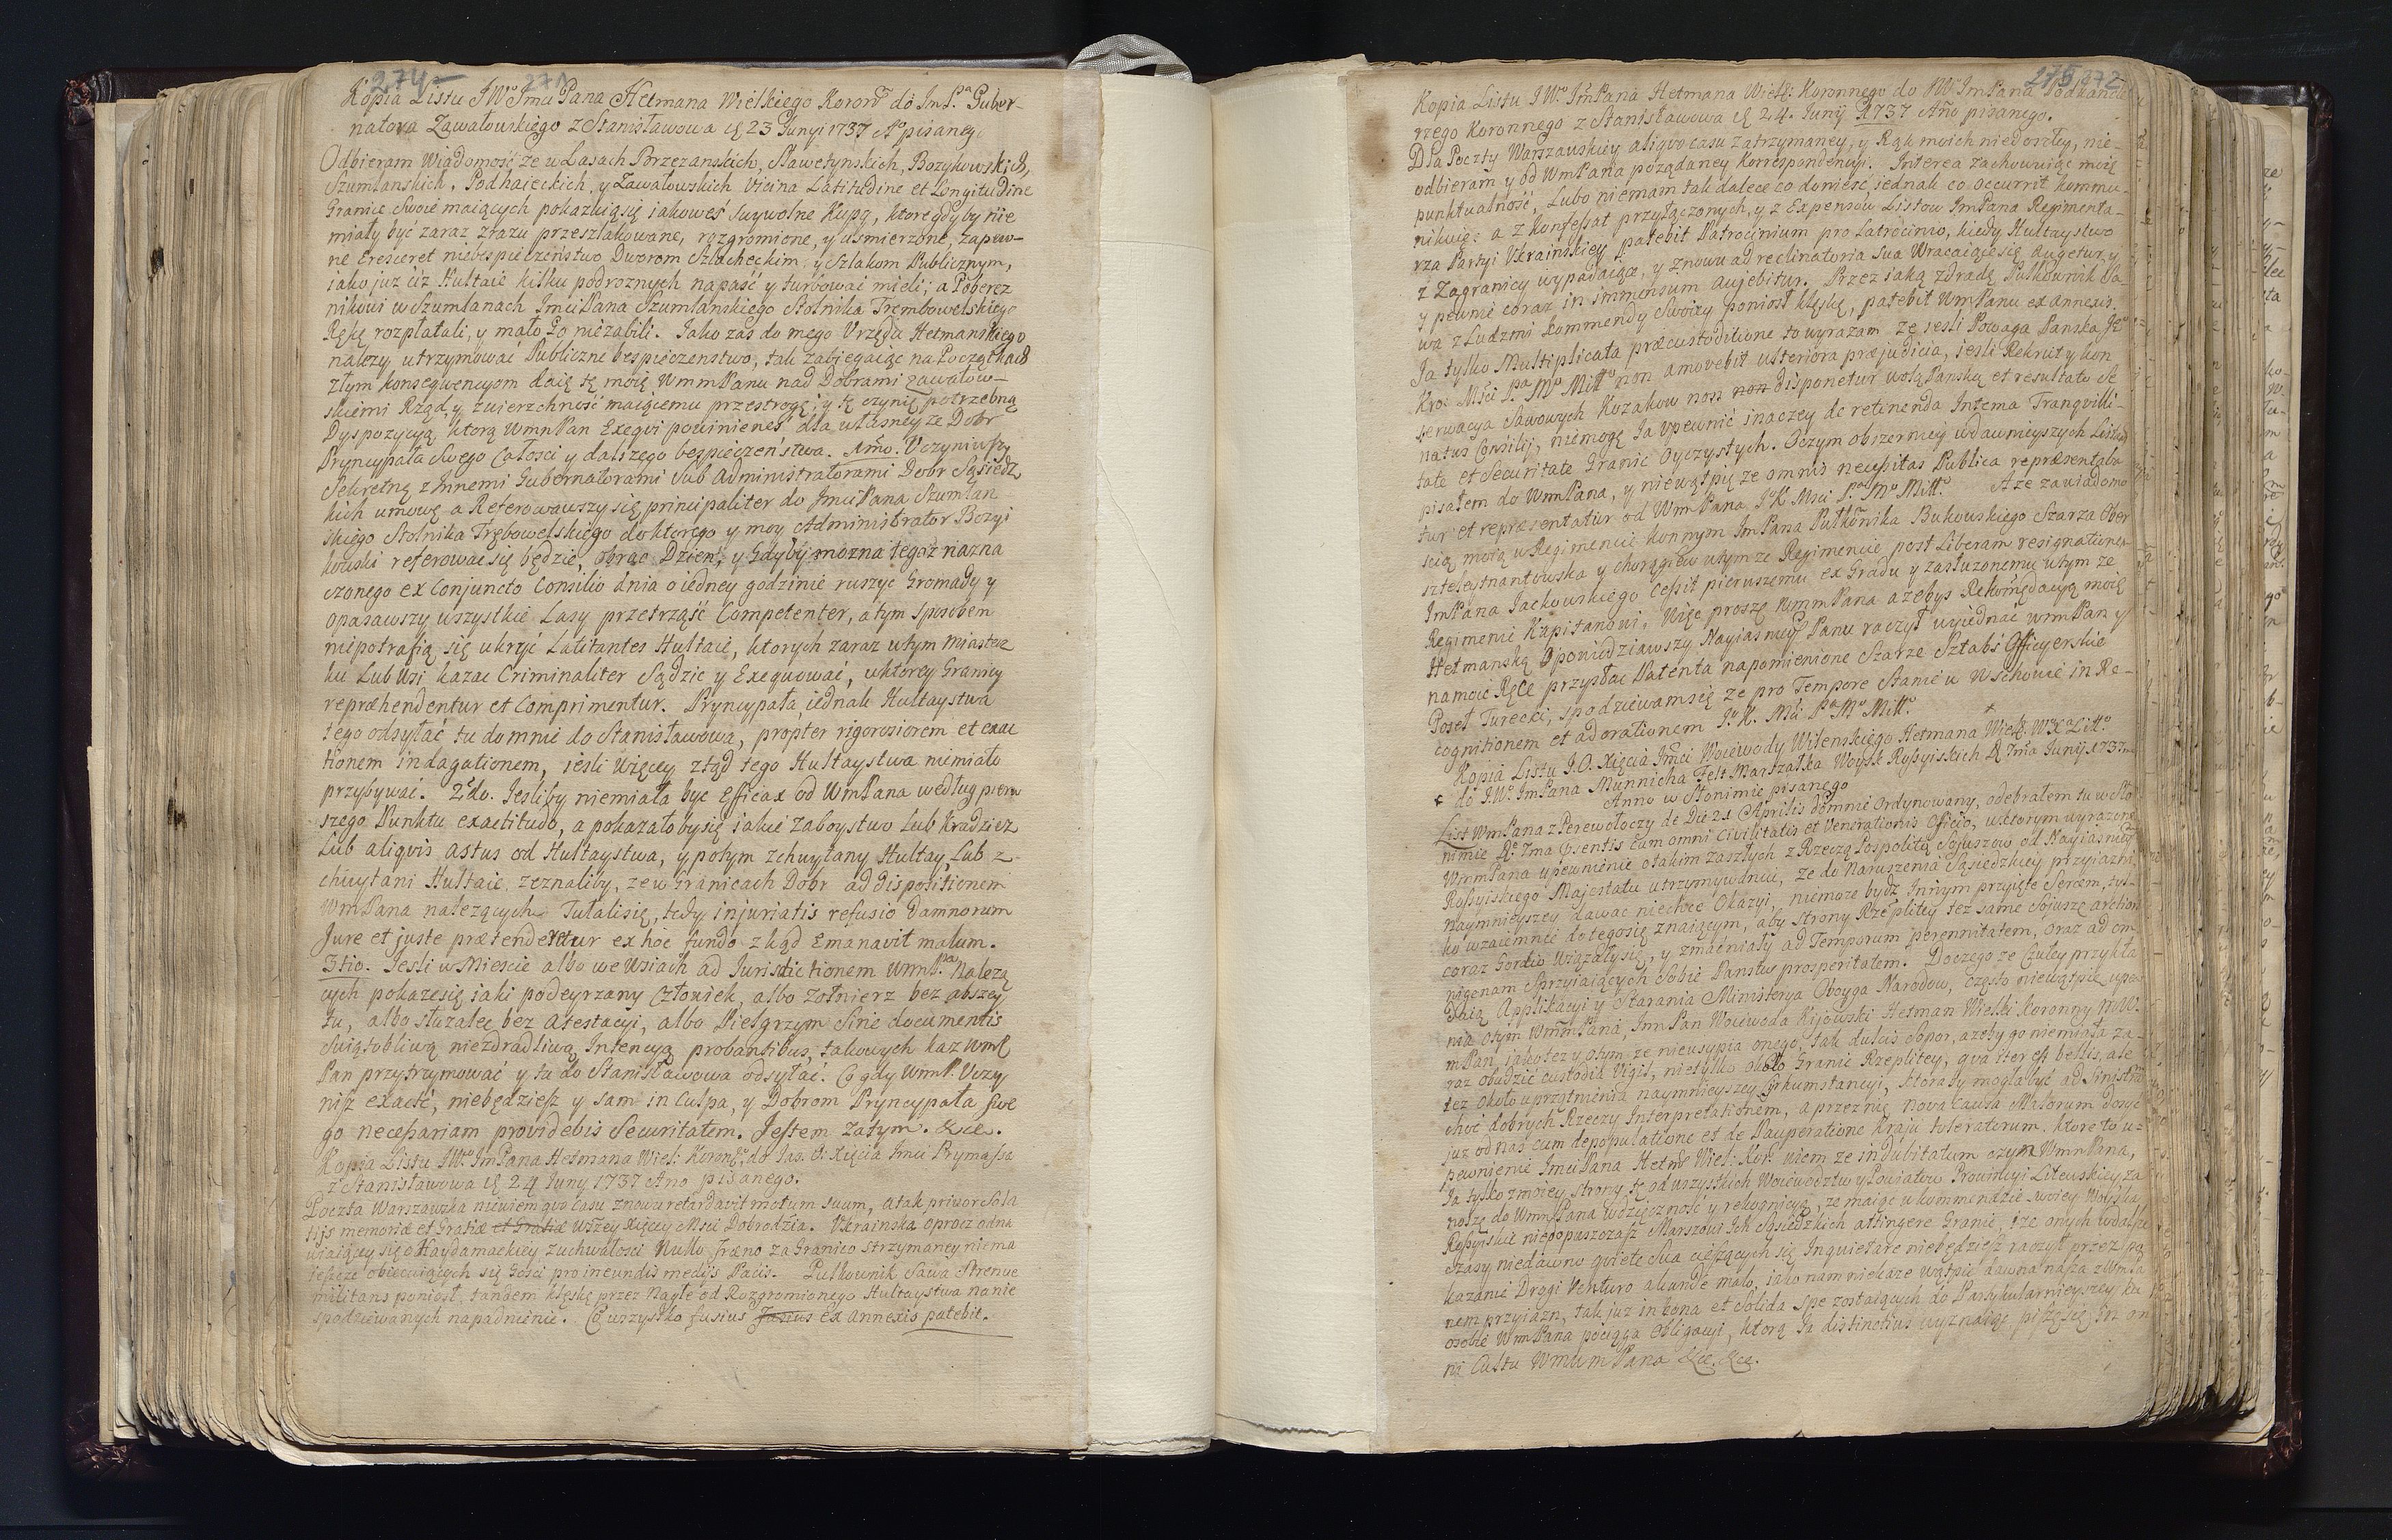 274 271
Kopia Listu JWo Jmci Pana Hetmana Wielkiego Koron: do Jm P.a Guber-
natora Zawałowskiego z Stanisławowa d. 23 Junyi 1737 Ao pisanego
Odbieram Wiadomość ze w Lasach Brzezanskich, Sławetynskich, Bozykowskich,
Szumlanskich, Podhaieckich, y Zawałowskich Vicina Latitudine et Longitudine
Granice Swoie maiących pokazuią się iakoweś swywolne Kupy, ktore gdyby nie
miały być zaraz zrazu przeszlakowane, rozgromione, y usmierzone, zapew-
ne cresceret niebespieczeństwo Dworom Szlacheckim, y Szlakom Publicznym,
iako juz ciz Hultaie kilku podroznych napaść y turbować mieli; a Poberez
nikowi w Szumlanach Jmci Pana Szumlanskiego Stolnika Trembowelskiego
Rękę rozpłatali, y mało Go niezabili. Jako zas do mego Urzędu Hetmanskiego
nalezy utrzymować Publiczne bespieczenstwo, tak zabiegaiąc na Początkach
złym konsequencyom daię tę moię Wmm Panu nad Dobrami zawałow-
skiemi Rząd, y zwierzchność maiącemu przestrogę; y tę czynię potrzebną
Dyspozycyą, ktorą Wmn Pan Exeqvi powinieneś dla własney ze Dobr
Pryncypała Swego Całosci y dalszego bespieczeństwa. Imo. Uczyniwszy
Sekretną z Innemi Gubernatorami Sub Administratorami Dobr Sąsiedz
kich umowę a Referowawszy się principaliter do Jmci Pana Szumlan
skiego Stolnika Trębowelskiego do ktorego y moy Administrator Bozyi
kowski referować się będzie, obrac Dzien, y Gdyby mozna tegoz nazna
czonego ex Conjuncto Consilio dnia o iedney godzinie ruszyc Gromady y
opasawszy wszystkie Lasy przetrząść Competenter, a tym sposobem
niepotrafią się ukryć Latitantes Hultaie, ktorych zaraz w tym miastecz
ku Lub Wsi kazac Criminaliter Sądzic y Exequować, w ktorey Granicy
repræhendentur et Comprimentur. Pryncypała iednak Hultaystwa
tego odsyłać tu do mnie do Stanisławowa, propter rigorosiorem et exac
tionem indagationem, iesli więcey ztąd tego Hultaystwa niemiało
przybywać. 2do. Jesliby niemiała być Efficax od Wm Pana według pierw
szego Punktu exactitudo, a pokazałoby się iakie Zaboystwo Lub Kradziez
Lub aliqvis astus od Hultaystwa, y potym zchwytany Hultay, Lub z-
chwytani Hultaie, zeznaliby, ze w Granicach Dobr ad dispositionem
Wm Pana nalezących Tułali się, tedy injuriatis refusio damnorum
Jure et juste prætenderetur ex hoc fundo zkąd Emanavit malum.
3tio. Jesli w Miescie albo we Wsiach ad Jurisdictionem Wmm P.na Nalezą
cych pokaze się iaki podeyrzany Człowiek, albo Zołnierz bez abszey
tu, albo słuzalec bez atestacyi, albo Pielgrzym Sine documentis
Swiątobliwą niezdradliwą Intencyą probantibus, takowych kaz Wmm
Pan przytrzymować y tu do Stanisławowa odsyłać. Co gdy Wmm P. Uczy
nisz exacté, niebędziesz y sam in Culpa, y Dobrom Pryncypała Swe
go necessariam providebis Securitatem. Jestem zatym. &ce.
Kopia Listu JWo Jm Pana Hetmana Wiel: Koron: do Jas. O. Xięcia Jmci Prymassa
z Stanisławowa d. 24 Juny 1737 Ano pisanego.
Poczta Warszawska niewiem quo casu znowu retardavit motum suum, a tak priuor Sola
tijs memoriæ et Gratiæ et Gratiæ Wszey Xięcey Mści Dobrodzia. Ukrainska oprocz odna
wiaiącey się Haydamackiey zuchwałosci Nullo fræno za Granico strzymaney niema
ieszcze obiecuiących się Gosci pro ineundis medijs Pacis. Pułkownik Sawa Strenue
militans poniosł tandem klęskę przez nagłe od Rozgromionego Hultaystwa na nie
spodziewanych napadnienie. Co wszystko fusius fusius ex annexis patebit.
275 272
Kopia Listu JWo Jm Pana Hetmana Wielk: Koronnego do JWo Jm Pana Podkancle
rzego Koronnego z Stanisławowa d. 24. Junij 1737 Ano pisanego.
Dla Poczty Warszawskiey aliqvo casu zatrzymaney, y Rąk moich niedoszłey, nie-
odbieram y od Wm Pana pożądaney korrespondencyi. Interea zachowuiąc moię
punktualność, Lubo niemam tak dalece co donieść, iednak co occurrit kommu-
nikuię: a z konfessat przyłączonych, y z Expensow Listow Jm Pana Regimenta-
rza Partyi Ukrainskiey patebit Patrocinium pro Latrocinio, kiedy Hultaystwo
z Zagranicy wypadaiące, y znowu ad reclinatoria sua Wracaiące się Augetur, y
y pewnie coraz in immensum augebitur. Przez iaką zdradę Pułkownik Sa-
wa z Ludzmi kommendy Swoiey poniosł klęskę, patebit Wm Panu ex annexis.
Ja tylko Multiplicata præcustoditione to wyrazam ze iesli Powaga Panska Jo
Kro: Mści P.a Mo Miłł.o non amovebit ulteriora præjudicia, iesli Rekrut y kon
serwacya Sawowych Kozakow non non disponetur wolą Panską et resultato Se
natus Consilij, niemogę Ja upewnić inaczey de retinenda Interna Tranqvilli-
tate et Securitate Granic Oyczystych. O czym obszerniey w dawnieyszych Listach
pisałem do Wm Pana, y niewątpię ze omnis necessitas Publica repræsentaba
tur et repræsentatur od Wm Pana Jo K. Mści P.a Mo Miłł.o A ze zawiadomo
scią moią w Regimencie konnym Jm Pana Pułkownika Bukowskiego Szarza Ober
sztleytnantowska y chorągiew w tym ze Regimencie post Liberam resignationem
Jm Pana Jackowskiego Cessit pierwszemu ex Gradu y zasłuzonemu w tym ze
Regimencie Kapitanowi, Więc proszę Wmm Pana azebys Rekomędacyą moię
Hetmanską Opowiedziawszy Nayiasnieyszemu Panu raczył wyiednać Wm Pan y
na moie Ręce przysłac Patenta napomienione Szarze Sztabs Officyerskie
Poseł Turecki, spodziewam się ze pro Tempore Stanie w Wschowie in Re-
cognitionem et adorationem Jo. K. Mści P.a Mo Miłł.o
Kopia Listu J.O. Xięcia Jmci Woiewody Wilenskiego Hetmana Wielk. W.X.a Litt.o
do J.Wo Jm Pana Munnicha Felt Marszałka Woysk Rossyiskich d. 7ma Junij 1737mo
Anno w Słonimie pisanego
List Wm Pana z Perewołoczy de Die 21 Aprilis do mnie Ordynowany, odebrałem tu w Sło
nimie d. 7ma Præsentis cum omni civilitatis et Venerationis officio, w ktorym wyrazone
Wmm Pana upewnienie o takim zaszłych z Rzeczą Pospolitą Sojuszow od Nayiasnieyszego
Rossyiskiego Majestatu utrzymywaniu, ze do Naruszenia Sąsiedzkiey przyiazni,
naymnieyszey dawac niechce Okazyi, niemoze bydz Innym przyięte Sercem, tyl-
ko wzaiemnie do tego się znaiącym, aby strony Rzeplitey tez same Sojusze arctiori
coraz Gordio Wiązały się, y zmacniały ad Temporum perennitatem, oraz ad om
nigenam Sprzyiaiących sobie Panstw prosperitatem. Do czego ze Czuley przykła
daią Applikacyi y Starania Ministerya Oboyga Narodow, często niewątpię upew
nia o tym Wmm Pana, Jm Pan Woiewoda Kijowski Hetman Wielki Koronny WW.
m Pan, iako tez y o tym ze nieusypia onego, tak dulcis Sopor, azeby go niemiała za-
raz obudzić custodia Vigil, nie tylko około Granic Rzeplitey, qua iter est bellis, ale
tez około uprzątnienia naymnieyszey Cyrkumstancyi, ktoraby mogła być ad sinistram
choć dobrych Rzeczy Interpretationem, a przez nię nova Causa Malorum dosyć
juz od nas cum depopulatione et de Pauperatione kraju toleratorum, ktore to u-
pewnienie Jmci Pana Hetm: Wiel: Kor: wiem ze indubitatum czyni Wmm Pana,
Ja tylko z moiey strony tę od wszystkich Woiewodztw y Powiatow Prowincyi Litewskiey za
noszę do Wmm Pana wdzięczność y rekognicyą, ze maiąc w kommendzie swoiey Woyska
Rossyiskie niedopuszczasz Marszowi Ich Sąsiedzkich attingere Granic, i ze onych w dalsze
czasy niedawno qviete Sua cieszących się Inquietare niebędziesz raczył przez po
kazanie Drogi Venturo aliunde malo, iako nam niekaze wątpić dawna nasza z Wm Pa
nem przyiazn, tak juz in bona et Solida spe zostaiących do Partykularnieyszey ku
osobie Wm Pana pociąga Obligacyi, ktorą Ja distinctius wyznaiąc piszę się in om
ni Cultu Wmum Pana &ce. &ce.